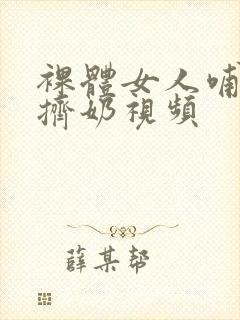 裸體女人哺
擠奶視頻
薛某幫